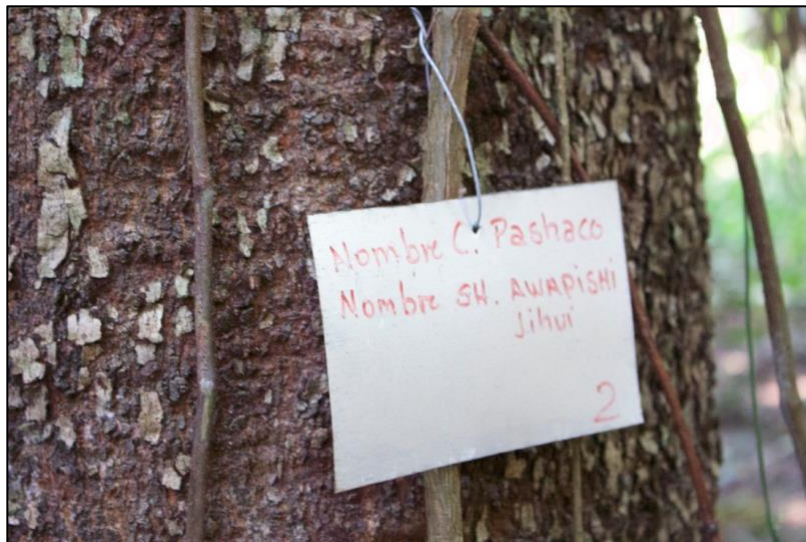 Nombre C. Pashaco
Nombre SH. AWAPISHI
Jihui
2